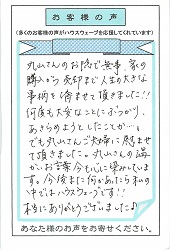 お客様の声
(多くのお客様の声がハウスウェーブを応援してくれています)
丸山さんのお陰で無事、家の
購入から売却まで人生の大きな
事柄を済ませて頂きました!!
何度も大変なことにぶつかり、
あきらめようとしたことか…。
でも丸山さんご夫婦に励ませ
て頂きました。丸山さんの温
かいお言葉、今も心に染みていま
す。今後また何かあったら私の
中ではハウスウェーブです!!
本当にありがとうございました♪
あなた様のお声をお寄せください。